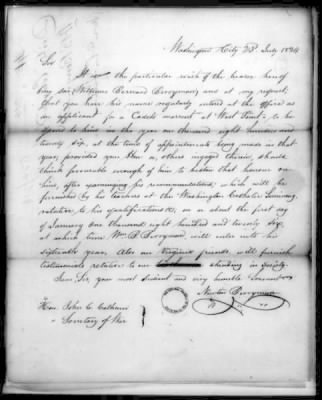 Washington City 28th July 1824
Sir
It is the particular wish of the bearer hereof
my son William Bernard Berryman and at my request
that you have his name regularly entered at the office as
an applicant for a Cadets warrant at West Point to be
given to him in the year one thousand eight hundred and
twenty six, at the time of appointments being made in that
year, provided you then or others engaged therein, should
think favourable enough of him to bestow that honour on
him, after examining his recommendations, which will be
furnished by his teachers at the Washington Catholic Seminary,
relative to his qualifications &c, on or about the first day
of January one thousand eight hundred and twenty six,
at which time Wm. B. Berryman, will enter into his
sixteenth year. Also our Virginia friends will furnish
testimonials relative to our standing in society.
I am Sir, your most obedient and very humble Servant
Newton Berryman
Hon. John C. Calhoun
Secretary of War